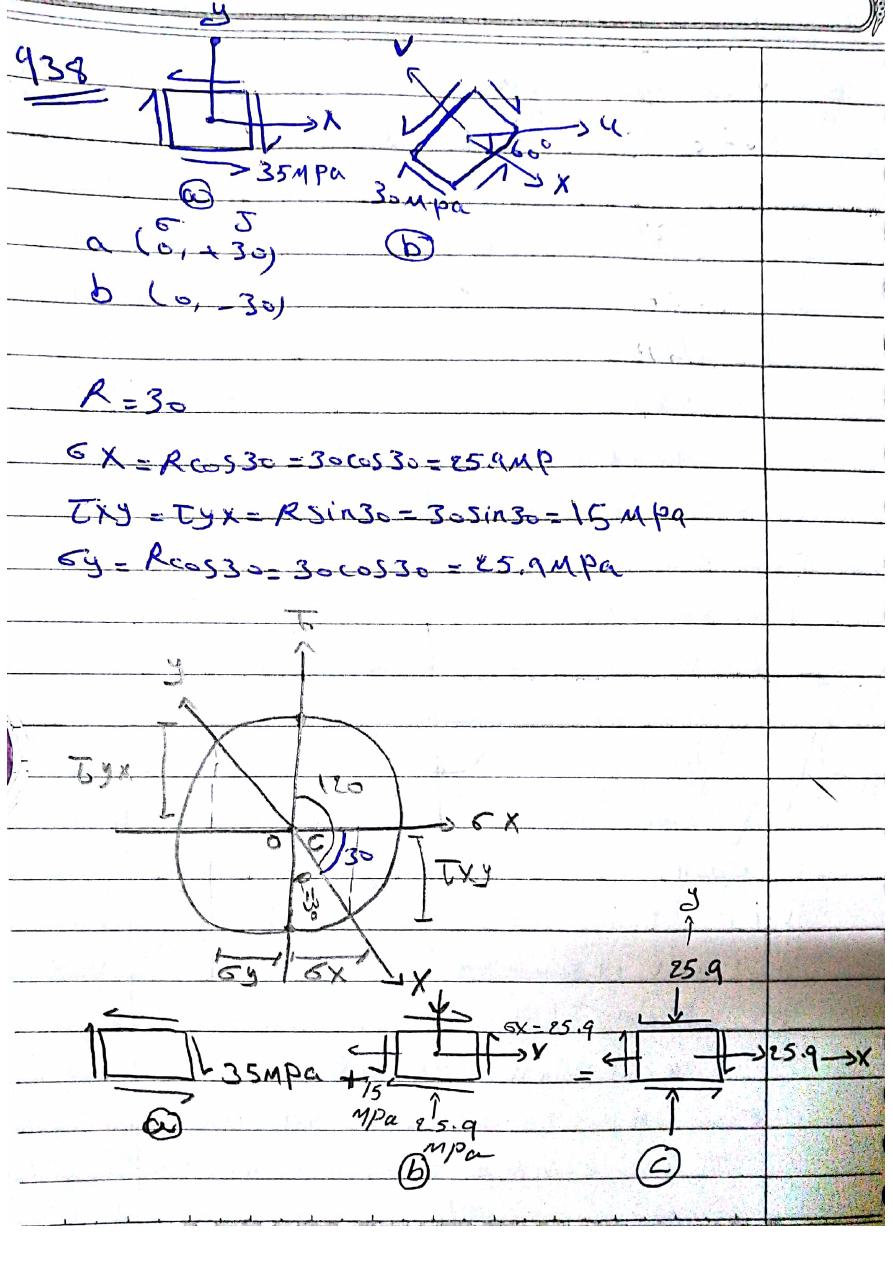 938
y
x
35MPa
a
v
u
60°
x
30MPa
b
σ τ
a (0, +30)
b (0, -30)
R=30
σx = Rcos30 = 30cos30 = 25.9MP
τxy = τyx = Rsin30 = 30sin30 = 15 MPa
σy = Rcos30 = 30cos30 = 25.9MPa
τ
y
τyx
120
σ x
O
C
30
τxy
σy
σx
x
y
25.9
σx=25.9
x
35MPa + 15 MPa
25.9 MPa
= 25.9 x
a
b
c